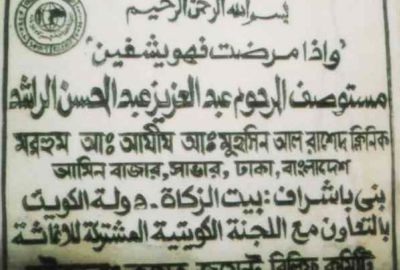 بسم الله الرحمن الرحيم
"واذا مرضت فهو يشفين"
مستوصف المرحوم عبد العزيز عبد المحسن الراشد
মরহুম আঃ আযীয আঃ মুহসিন আল রাশেদ ক্লিনিক
আমিন বাজার, সাভার, ঢাকা, বাংলাদেশ
بني باشراف: بيت الزكاة. دولة الكويت
بالتعاون مع اللجنة الكويتية المشتركة للاغاثة